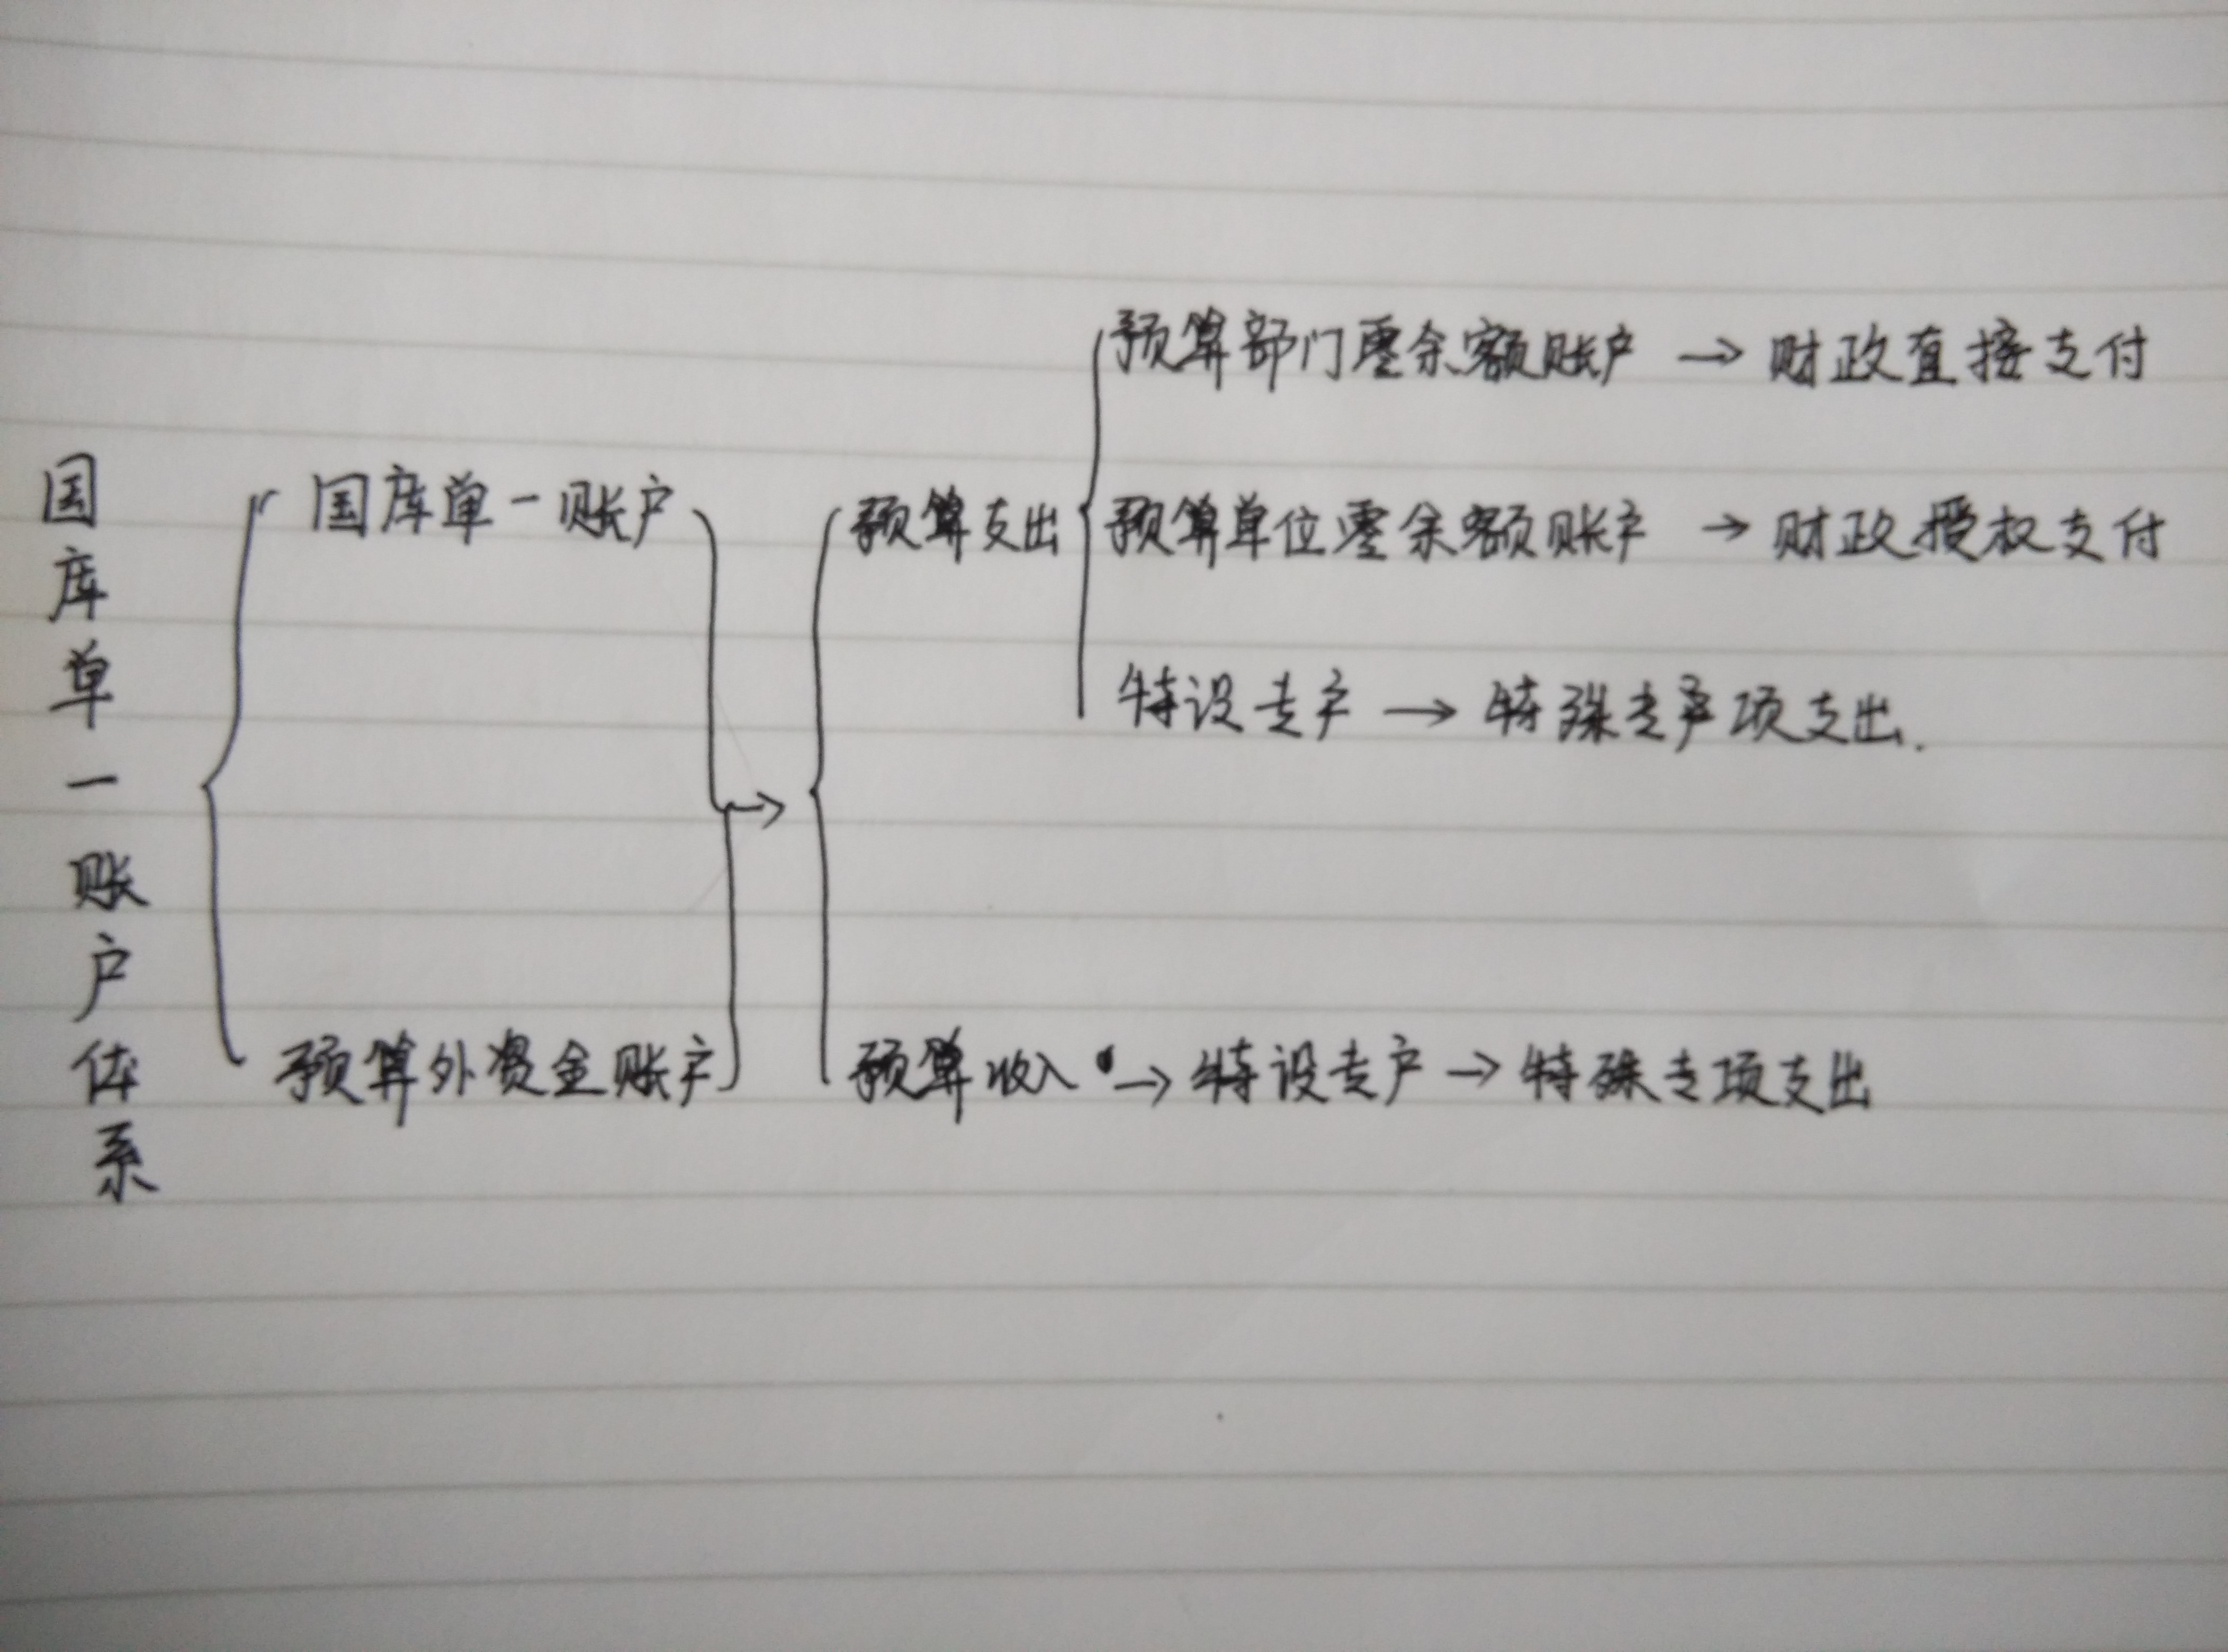 国库单一账户体系
国库单一账户
预算外资金账户
预算支出
预算部门零余额账户 → 财政直接支付
预算单位零余额账户 → 财政授权支付
特设专户 → 特殊专户项支出.
预算收入 → 特设专户 → 特殊专项支出